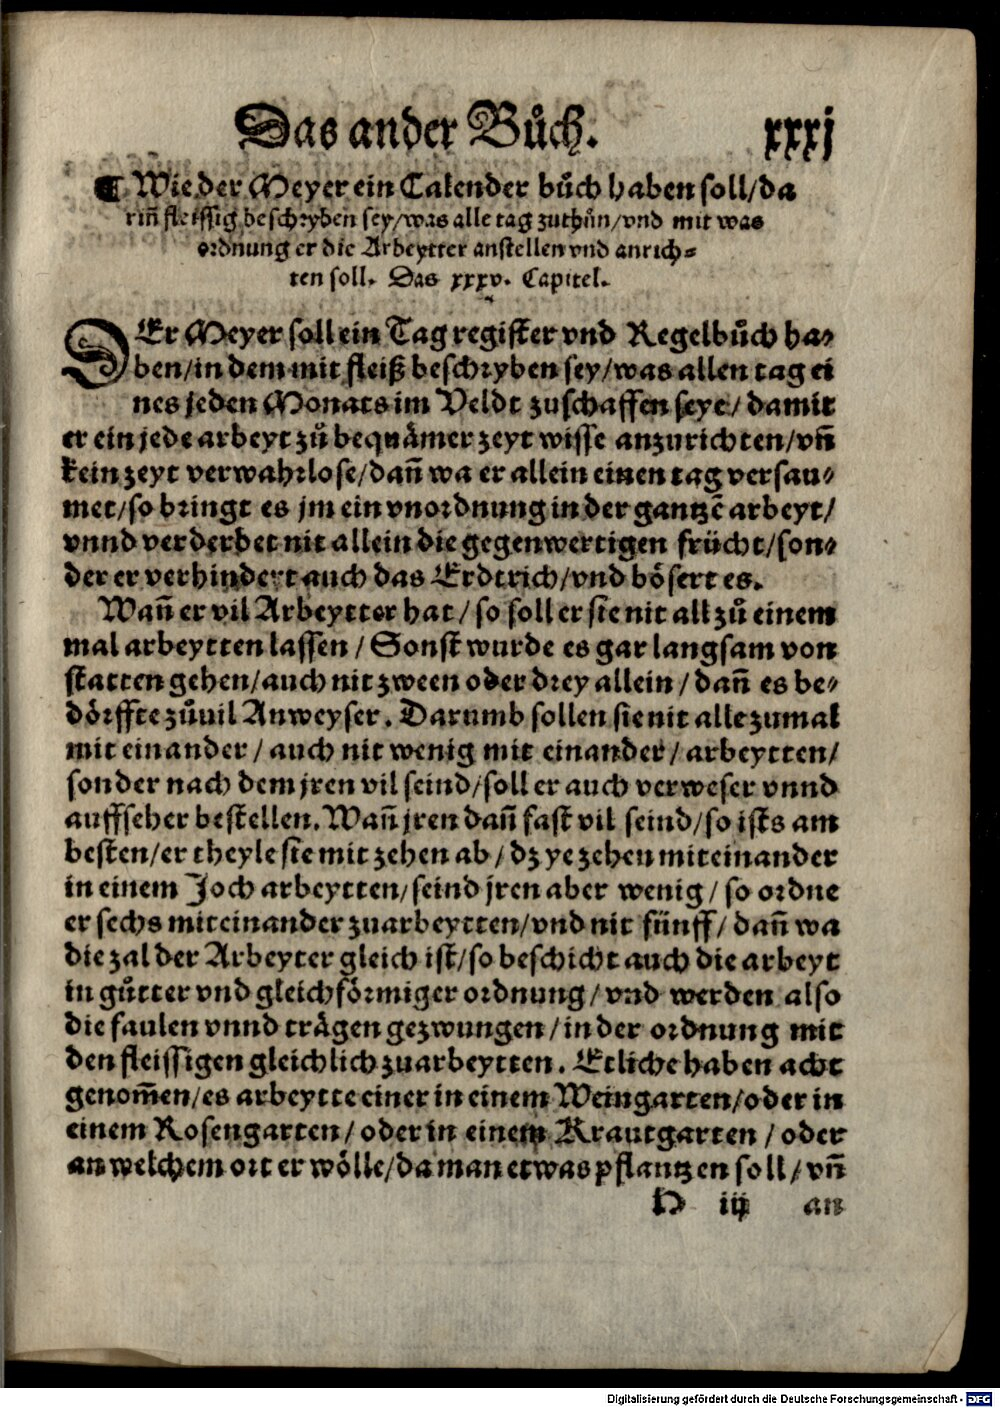 Das ander Bůch. xxxj
¶ Wie der Meyer ein Calender bůch haben soll/da
riñ fleissig beschryben sey/was alle tag zuthůn/vnd mit was
ordnung er die Arbeytter anstellen vnd anrich⸗
ten soll. Das xxxv. Capitel.
DEr Meyer soll ein Tag register vnd Regelbůch ha⸗
ben/in dem mit fleiß beschryben sey/was allen tag ei
nes jeden Monats im Veldt zuschaffen seye/damit
er ein jede arbeyt zů bequämer zeyt wisse anzurichten/vñ
kein zeyt verwahrlose/dañ wa er allein einen tag versau⸗
met/so bringt es jm ein vnordnung in der gantzē arbeyt/
vnnd verderbet nit allein die gegenwertigen frücht/son⸗
der er verhindert auch das Erdtrich/vnd bösert es.
Wañ er vil Arbeytter hat/so soll er sie nit all zů einem
mal arbeytten lassen/Sonst wurde es gar langsam von
statten gehen/auch nit zween oder drey allein/dañ es be⸗
dörffte zůuil Anweyser. Darumb sollen sie nit alle zumal
mit einander/auch nit wenig mit einander/arbeytten/
sonder nach dem jren vil seind/soll er auch verweser vnnd
auffseher bestellen. Wañ jren dañ fast vil seind/so ists am
besten/er theyle sie mit zehen ab/dz ye zehen miteinander
in einem Joch arbeytten/seind jren aber wenig/so ordne
er sechs miteinander zuarbeytten/vnd nit fünff/dañ wa
die zal der Arbeyter gleich ist/so beschicht auch die arbeyt
in gůtter vnd gleichförmiger ordnung/vnd werden also
die faulen vnnd trägen gezwungen/in der ordnung mit
den fleissigen gleichlich zuarbeytten. Etliche haben acht
genom̃en/es arbeytte einer in einem Weingarten/oder in
einem Rosengarten/oder in einem Krautgarten/oder
an welchem ort er wölle/da man etwas pflantzen soll/vñ
H iij an
Digitalisierung gefördert durch die Deutsche Forschungsgemeinschaft - DFG